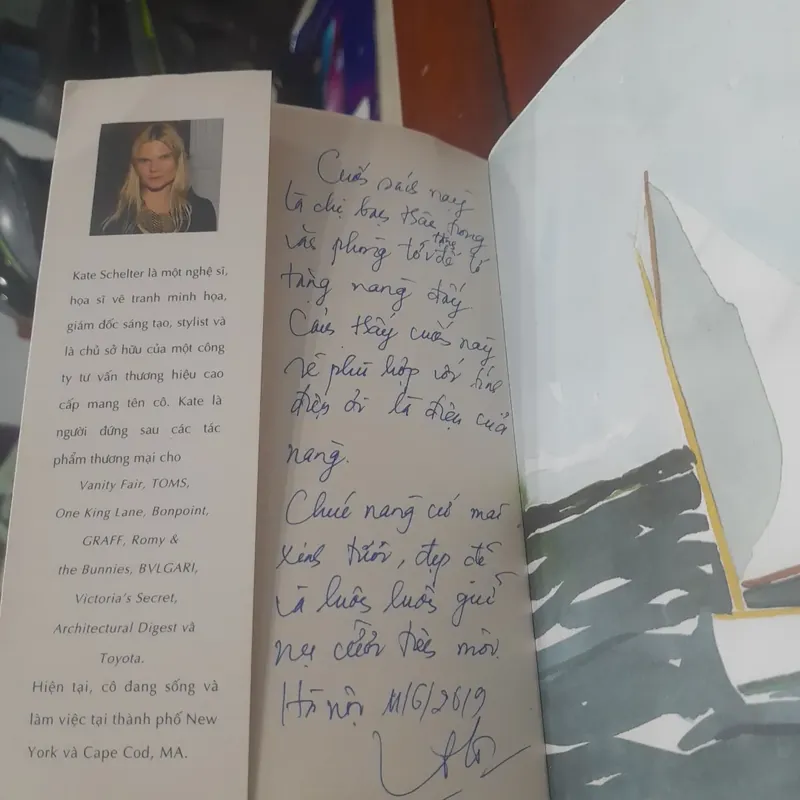 Kate Schelter là một nghệ sĩ,
họa sĩ vẽ tranh minh họa,
giám đốc sáng tạo, stylist và
là chủ sở hữu của một công
ty tư vấn thương hiệu cao
cấp mang tên cô. Kate là
người đứng sau các tác
phẩm thương mại cho
Vanity Fair, TOMS,
One King Lane, Bonpoint,
GRAFF, Romy &
the Bunnies, BVLGARI,
Victoria's Secret,
Architectural Digest và
Toyota.
Hiện tại, cô đang sống và
làm việc tại thành phố New
York và Cape Cod, MA.
Cuốn sách này
là chị bạn thân trong
văn phòng tớ để
tặng nàng đấy
Cảm thấy cuốn này
rất phù hợp với
là điệu của
nàng.
Chúc nàng cứ mãi
xinh tươi, đẹp đẽ
và luôn luôn giữ
nụ cười trên môi.
Hà Nội 11/6/2019